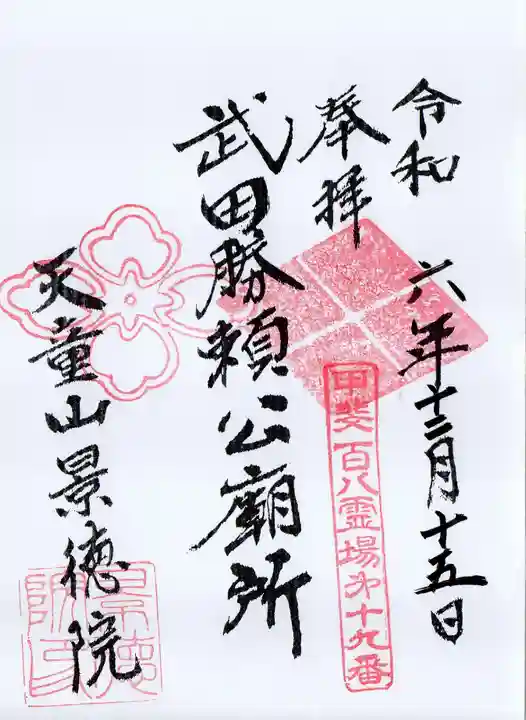 令和六年十二月十五日
奉拝
甲斐百八霊場第十九番
武田勝頼公廟所
天童山景徳院
景徳院印